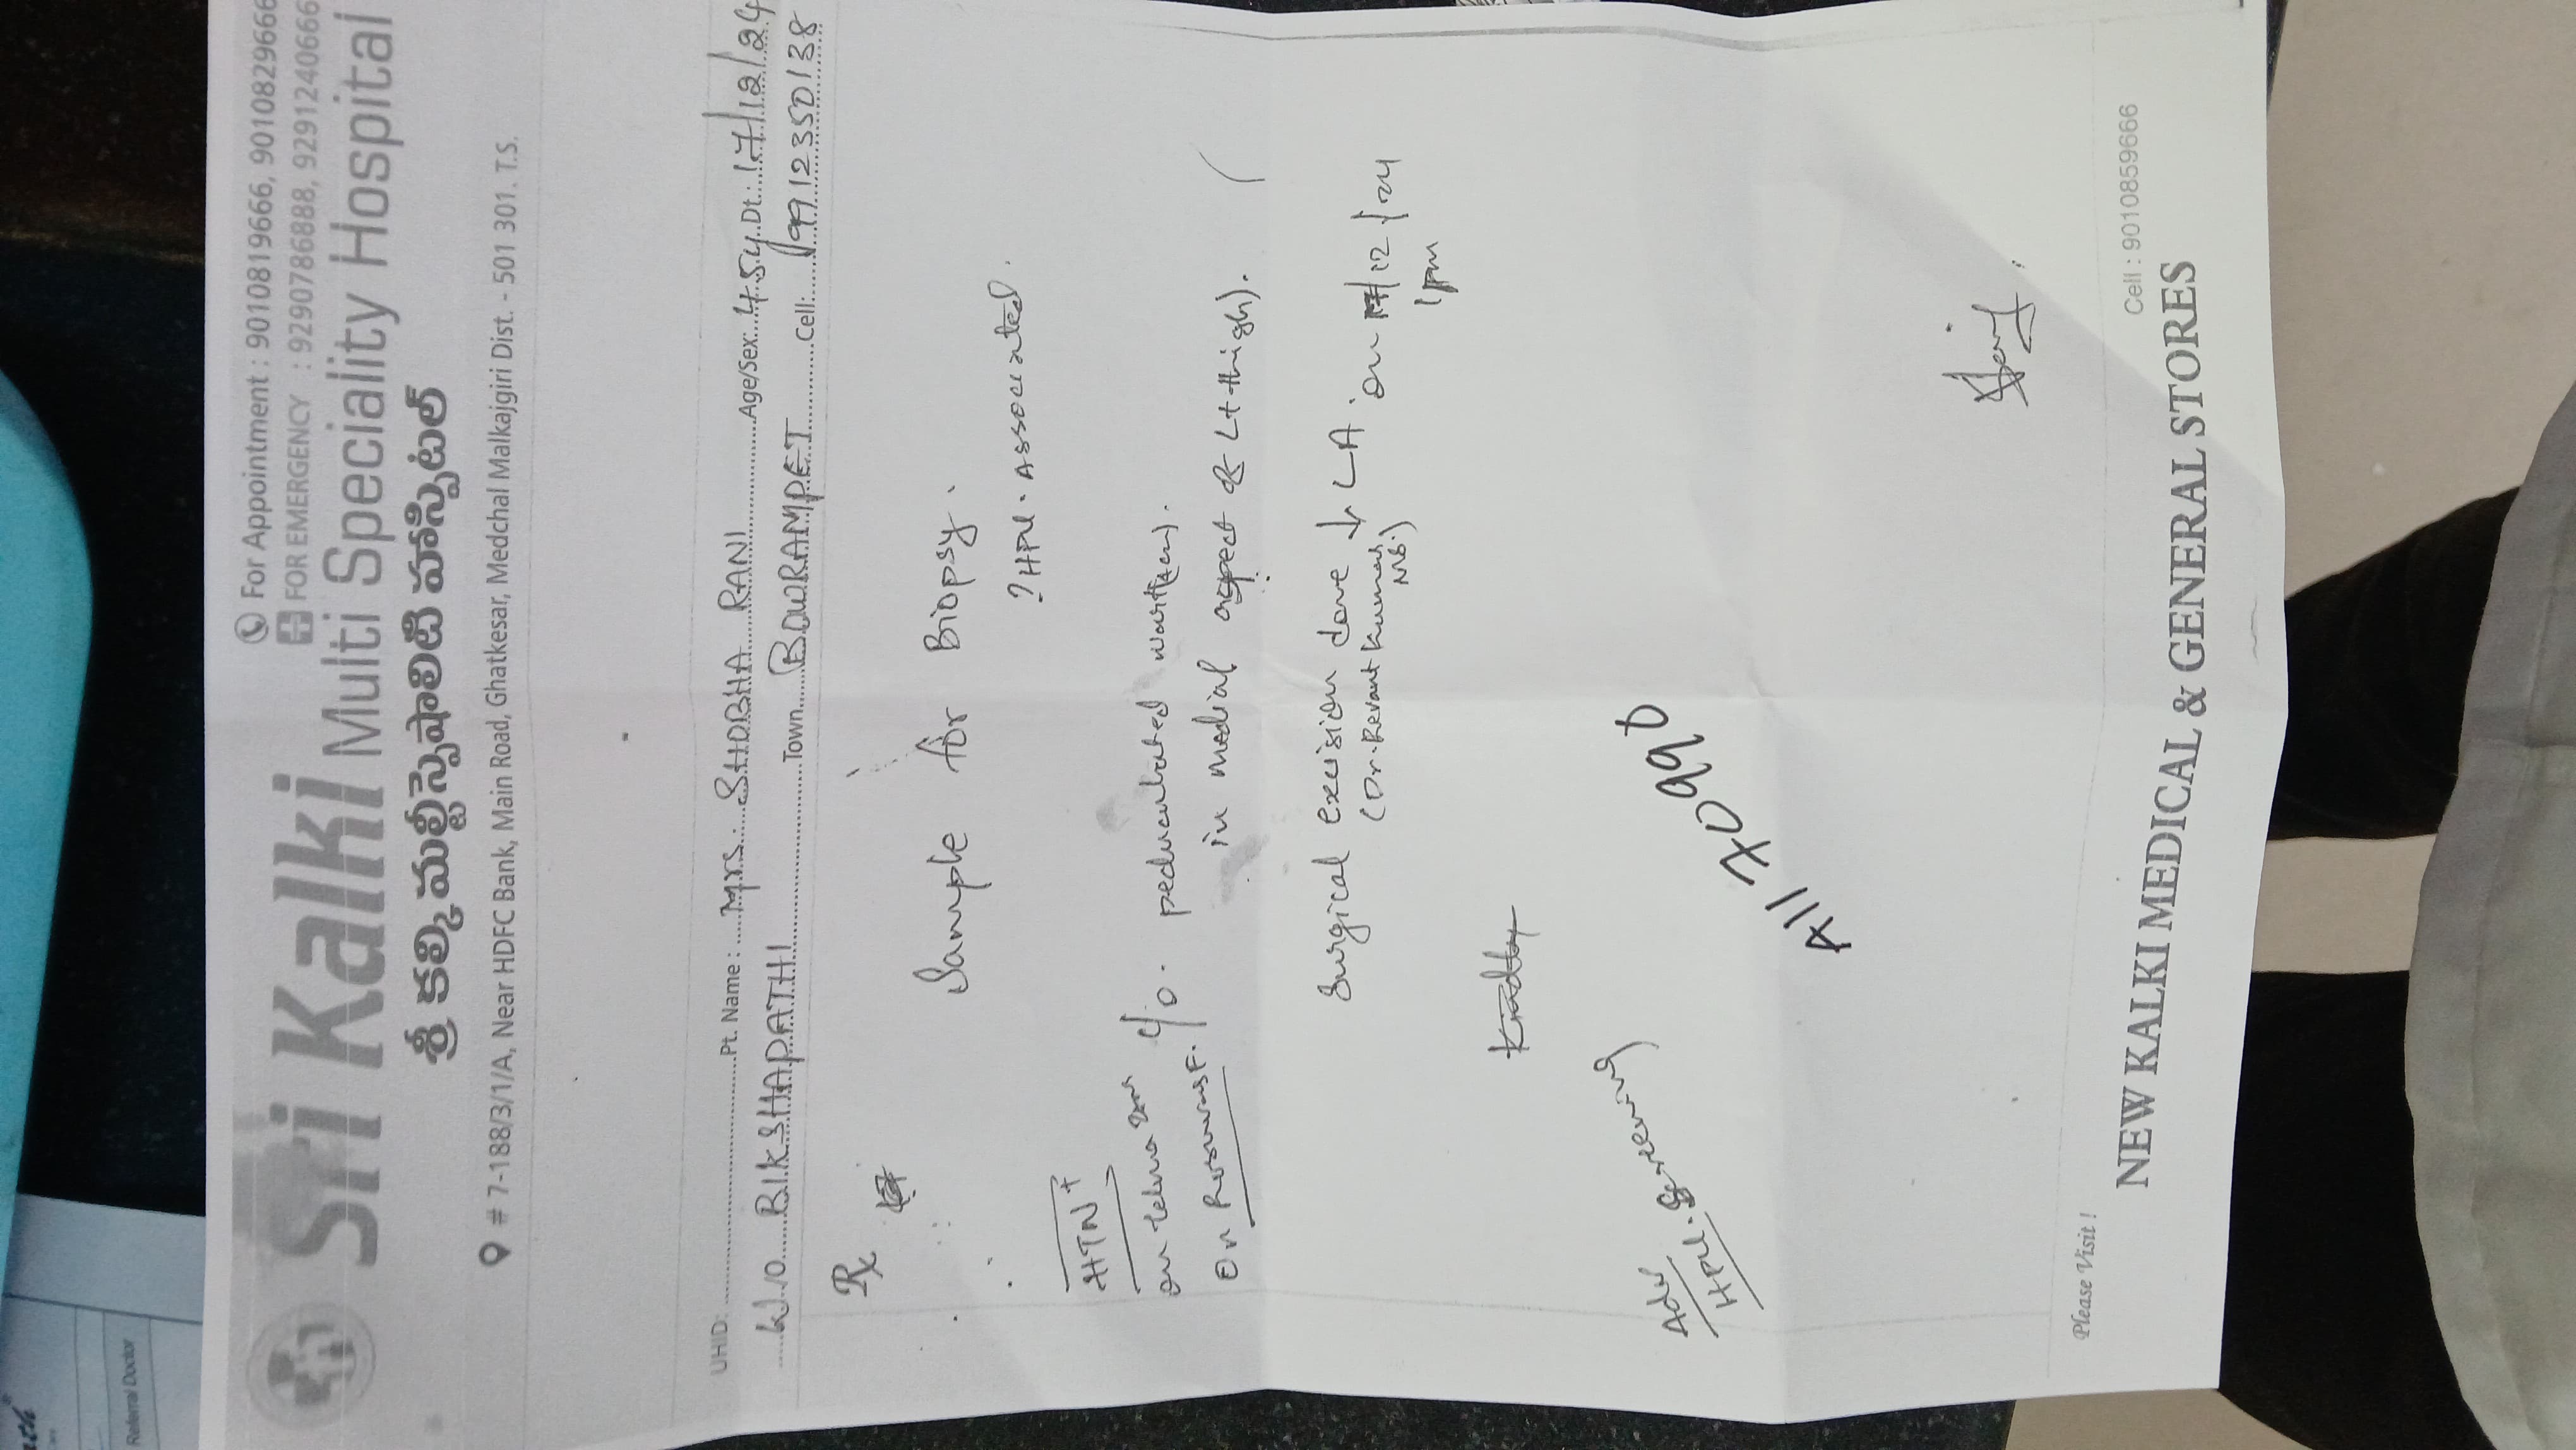 For Appointment : 9010819666, 9010829666
FOR EMERGENCY : 9290786888, 9291240666
Sri Kalki Multi Speciality Hospital
శ్రీ కల్కి మల్టీస్పెషాలిటీ హాస్పిటల్
# 7-188/3/1/A, Near HDFC Bank, Main Road, Ghatkesar, Medchal Malkajgiri Dist. - 501 301. T.S.
UHID: Pt. Name : Mrs. SHOBHA RANI Age/Sex: 45y Dt.: 17/12/24
W/O BIKSHAPATHI Town BOWRAMPET Cell: 9912350138
Rx
Sample for Biopsy.
? HPV. Associated.
HTN +
on telma
C/O. pedunculated wart
in medial aspect of Lt thigh).
Surgical excision done ↓ LA on 17/12/24
(Dr. Revant Kumar, MS.) 1pm
Adv
HPV. Screening
Please Visit !
Cell : 9010859666
NEW KALKI MEDICAL & GENERAL STORES
Referral Doctor